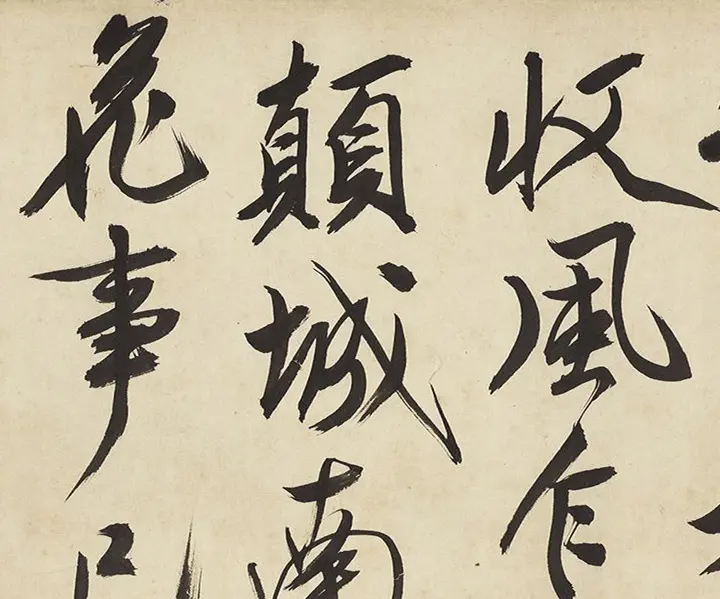 收風乍
顛城南
花事